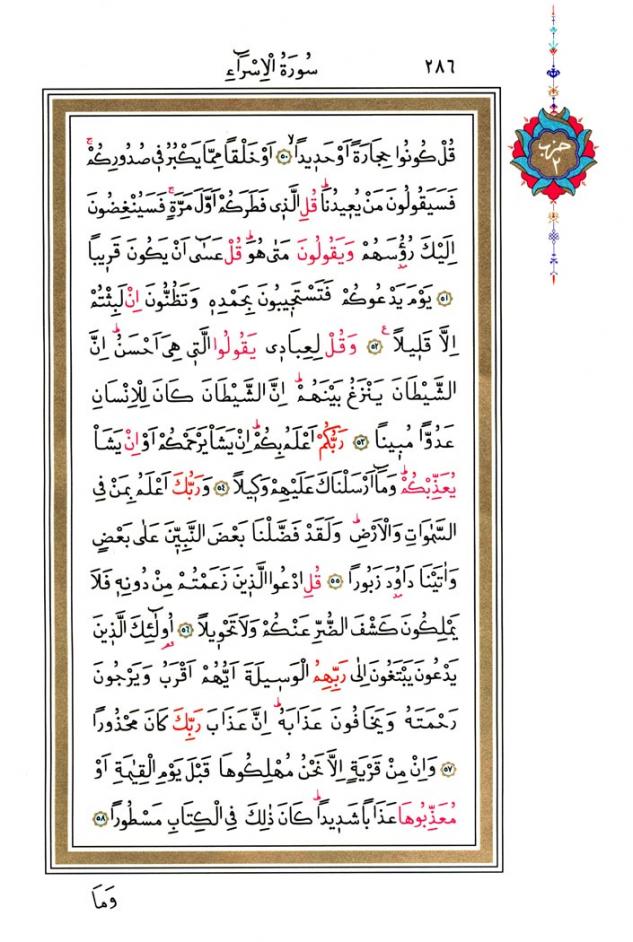 سُورَةُ الْاِسْرَٓاءِ ٢٨٦
حزب ٢
قُلْ كُونُوا حِجَارَةً اَوْ حَد۪يداًۙ ٥٠ اَوْ خَلْقاً مِمَّا يَكْبُرُ ف۪ي صُدُورِكُمْۚ
فَسَيَقُولُونَ مَنْ يُع۪يدُنَاۜ قُلِ الَّذ۪ي فَطَرَكُمْ اَوَّلَ مَرَّةٍۚ فَسَيُنْغِضُونَ
اِلَيْكَ رُؤُ۫سَهُمْ وَيَقُولُونَ مَتٰى هُوَۜ قُلْ عَسٰٓى اَنْ يَكُونَ قَر۪يباً
٥١ يَوْمَ يَدْعُوكُمْ فَتَسْتَج۪يبُونَ بِحَمْدِه۪ وَتَظُنُّونَ اِنْ لَبِثْتُمْ
اِلَّا قَل۪يلاً۟ ٥٢ وَقُلْ لِعِبَاد۪ي يَقُولُوا الَّت۪ي هِيَ اَحْسَنُۜ اِنَّ
الشَّيْطَانَ يَنْزَغُ بَيْنَهُمْۜ اِنَّ الشَّيْطَانَ كَانَ لِلْاِنْسَانِ
عَدُواًّ مُب۪يناً ٥٣ رَبُّكُمْ اَعْلَمُ بِكُمْۜ اِنْ يَشَأْ يَرْحَمْكُمْ اَوْ اِنْ يَشَأْ
يُعَذِّبْكُمْۜ وَمَٓا اَرْسَلْنَاكَ عَلَيْهِمْ وَك۪يلاً ٥٤ وَرَبُّكَ اَعْلَمُ بِمَنْ فِي
السَّمٰوَاتِ وَالْاَرْضِۜ وَلَقَدْ فَضَّلْنَا بَعْضَ النَّبِيّ۪نَ عَلٰى بَعْضٍ
وَاٰتَيْنَا دَاوُ۫دَ زَبُوراً ٥٥ قُلِ ادْعُوا الَّذ۪ينَ زَعَمْتُمْ مِنْ دُونِه۪ فَلَا
يَمْلِكُونَ كَشْفَ الضُّرِّ عَنْكُمْ وَلَا تَحْو۪يلاً ٥٦ اُو۬لٰٓئِكَ الَّذ۪ينَ
يَدْعُونَ يَبْتَغُونَ اِلٰى رَبِّهِمُ الْوَس۪يلَةَ اَيُّهُمْ اَقْرَبُ وَيَرْجُونَ
رَحْمَتَهُ وَيَخَافُونَ عَذَابَهُۜ اِنَّ عَذَابَ رَبِّكَ كَانَ مَحْذُوراً
٥٧ وَاِنْ مِنْ قَرْيَةٍ اِلَّا نَحْنُ مُهْلِكُوهَا قَبْلَ يَوْمِ الْقِيٰمَةِ اَوْ
مُعَذِّبُوهَا عَذَاباً شَد۪يداًۜ كَانَ ذٰلِكَ فِي الْكِتَابِ مَسْطُوراً ٥٨
وَمَا